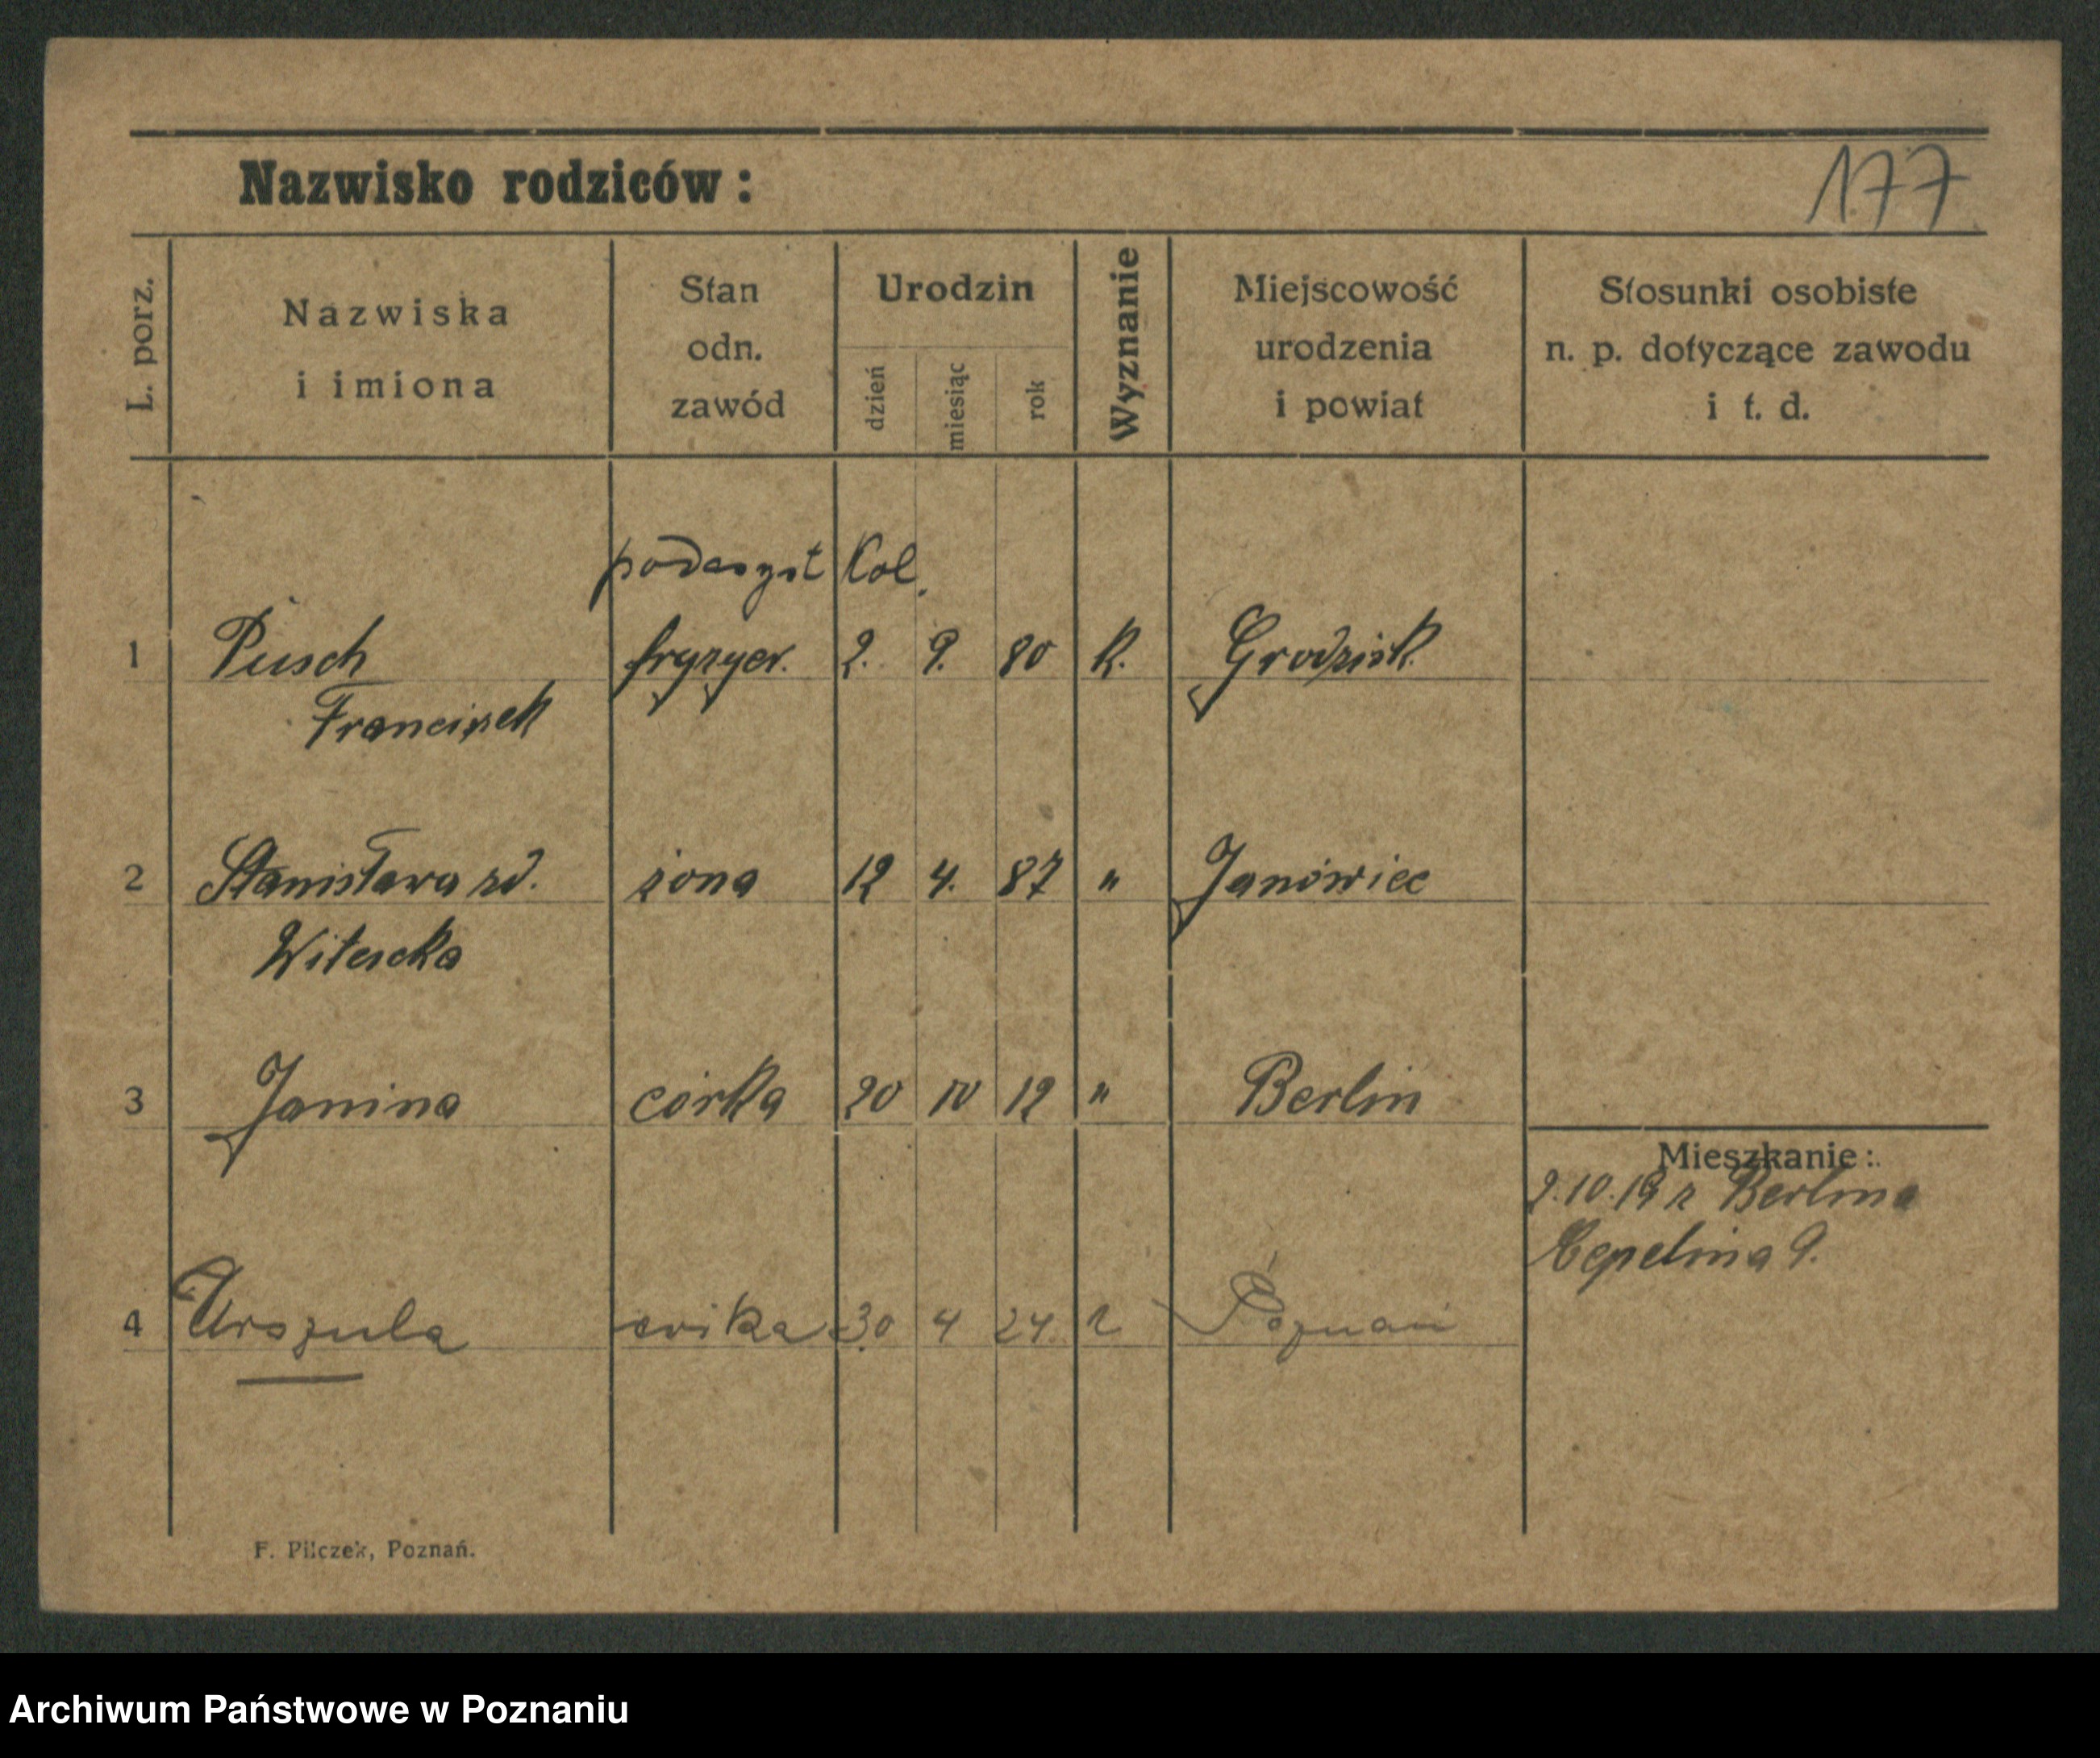 177
Nazwisko rodziców:
L. porz.
Nazwiska
i imiona
Stan
odn.
zawód
Urodzin
dzień
miesiąc
rok
Wyznanie
Miejscowość
urodzenia
i powiat
Stosunki osobiste
n. p. dotyczące zawodu
i t. d.
Kol.
1 Pusch fryzyer. 2. 9. 80 k. Grodzisk
Franciszek
2 Stanisława zd. żona 12 4. 87 " Janówiec
3 Janina córka 20 10 12 " Berlin
Mieszkanie:
2.10.19 z Berlina
Cepelina 9.
4 Urszula córka 30 4 24 Poznań
F. Pilczek, Poznań.
Archiwum Państwowe w Poznaniu